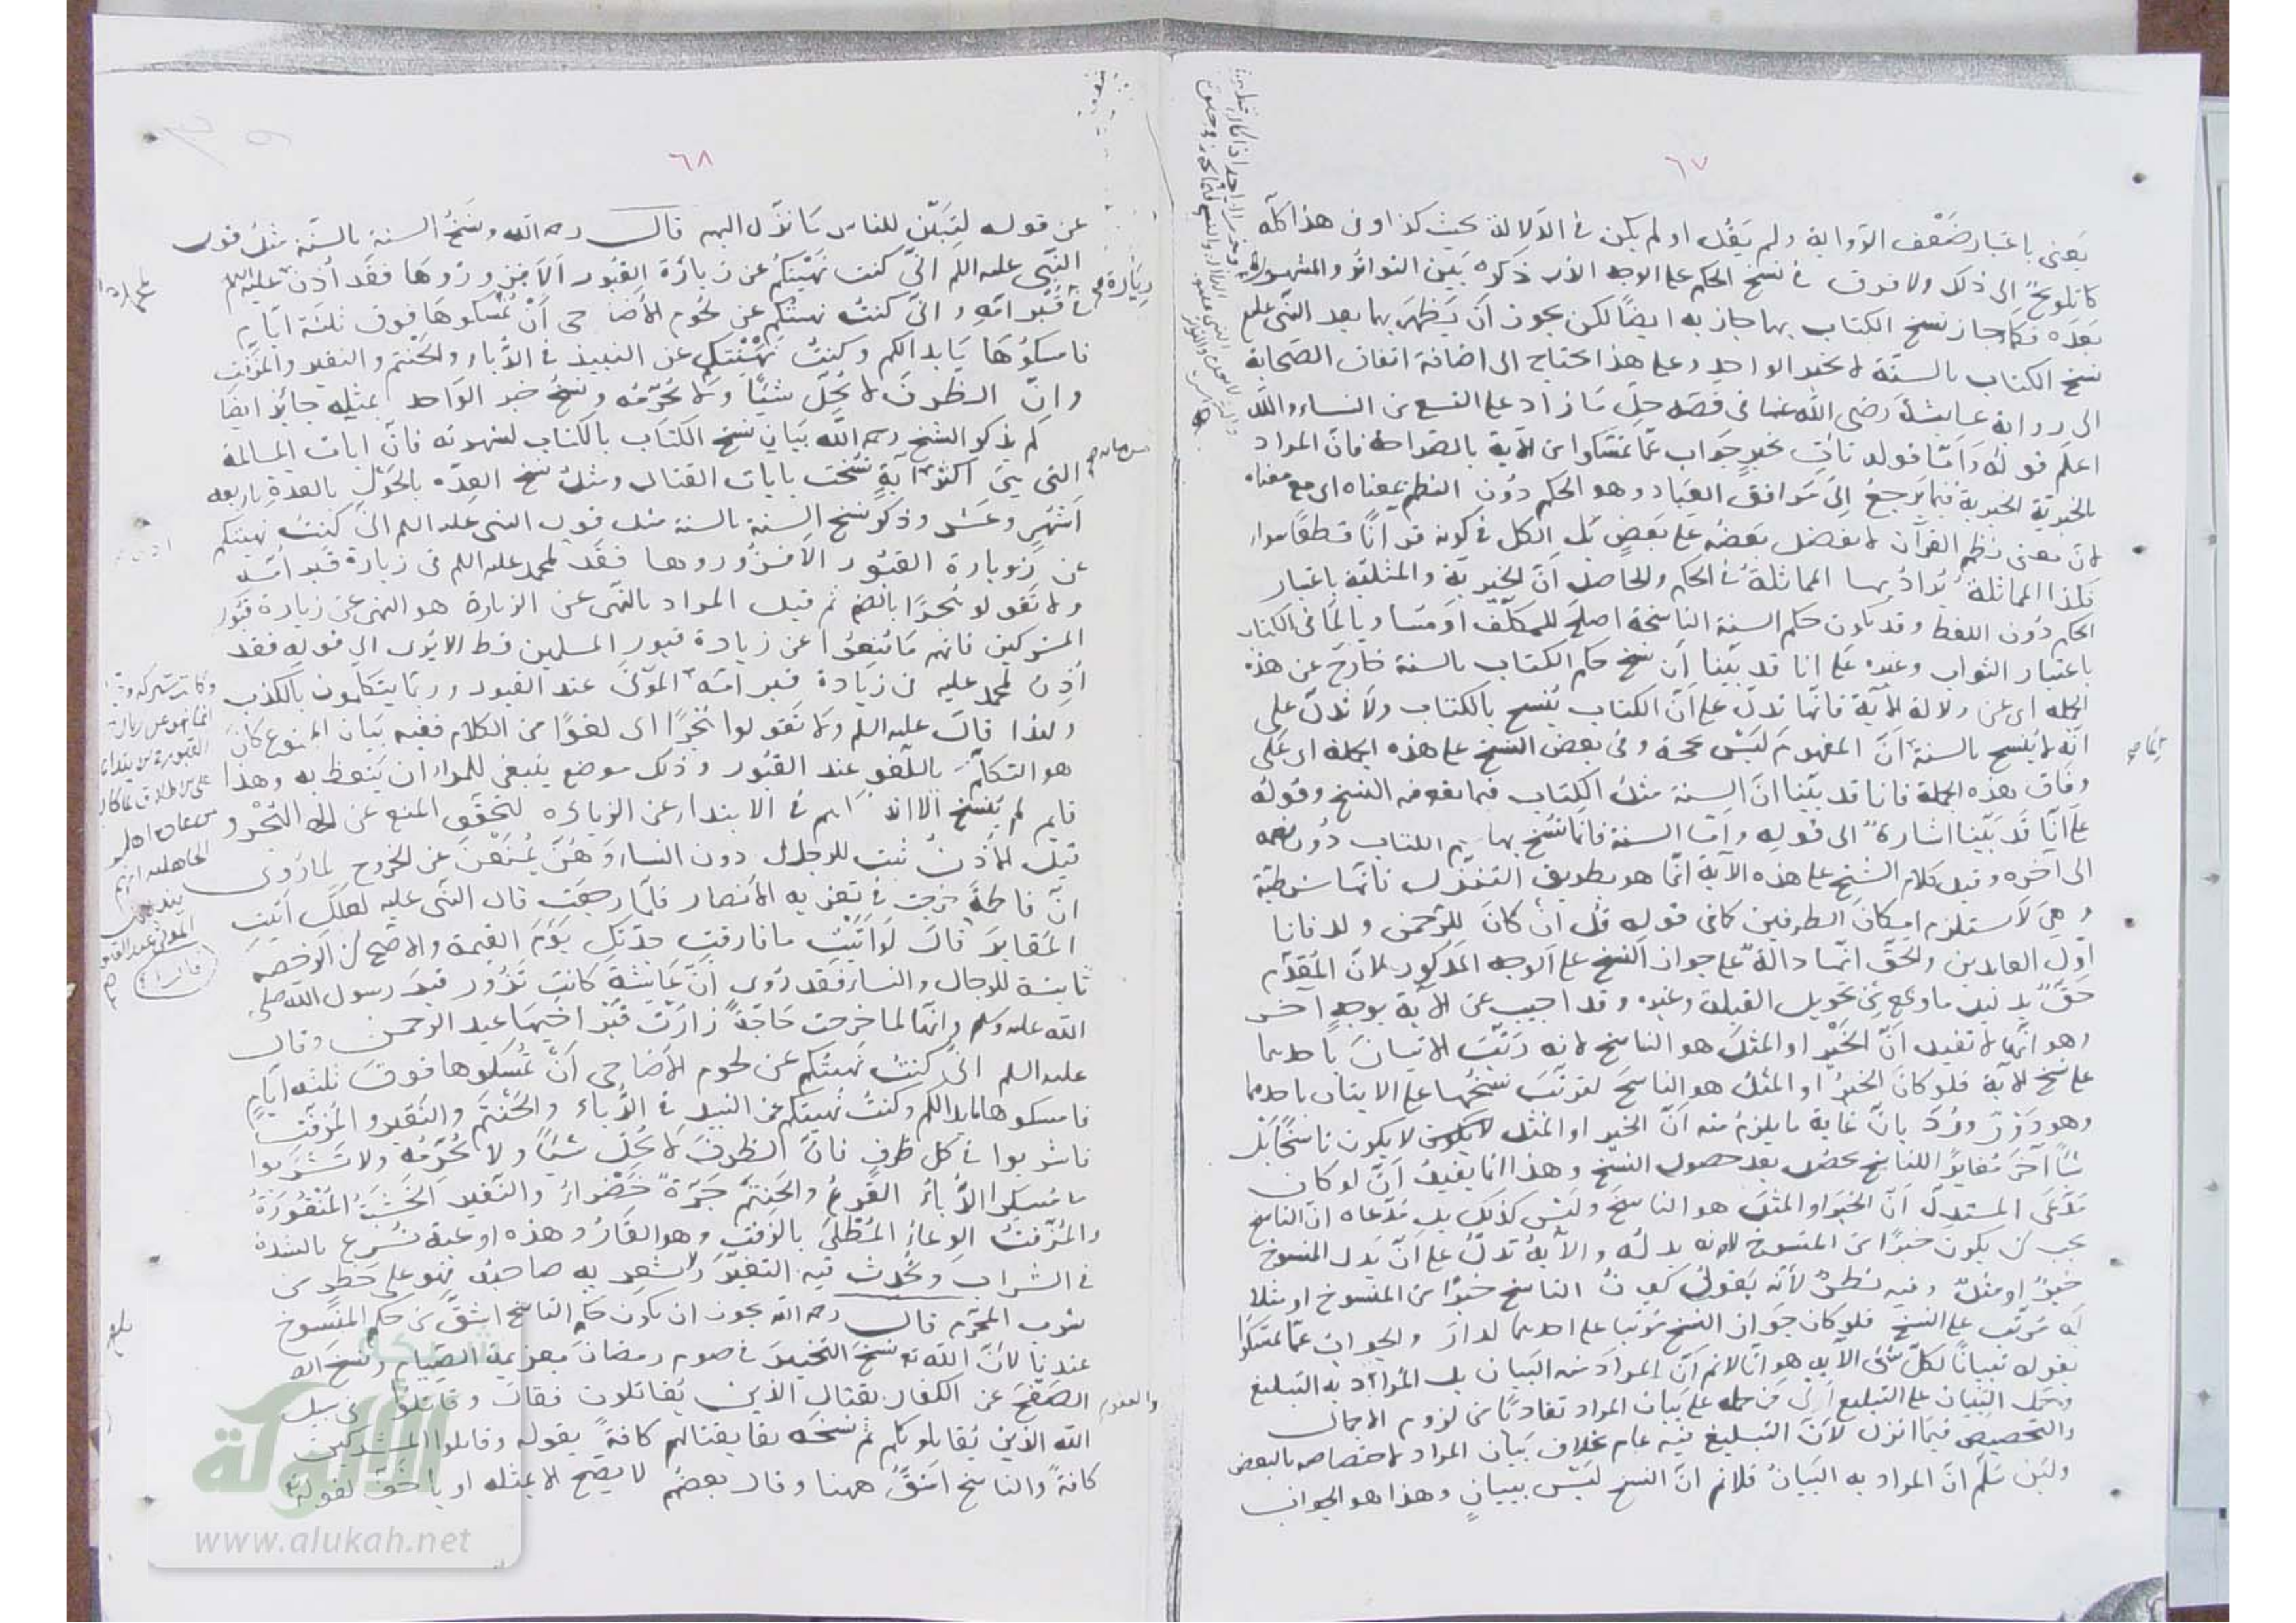 ٦٧
يعنى باعتبار ضعف الرواية ولم يقل او لم يكن فى الدلالة بحيث كذا وفى هذا كله
كالتلويح الى ذلك ولا فرق فى نسخ الحكم على الوجه الذى ذكره بين التواتر والمشهور
بعده فكما جاز نسخ الكتاب بهما جاز به ايضا لكن يجوز ان يظهر بهما بعد النبى علم
نسخ الكتاب بالسنة لا بخبر الواحد وعلى هذا يحتاج الى اضافة اتفاق الصحابة
الى رواية عايشة رضى الله عنها فى قصة حل ما زاد على التسع من النساء والله
اعلم قوله واما قوله نأت بخير جواب عما تمسكوا من الآية بالصراحة فان المراد
بالخيرية الخيرية فيما يرجع الى مرافق العباد وهو الحكم دون النظم بمعناه اى مع معناه
لان معنى نظم القرآن لا يفضل بعضه على بعض بل الكل فى كونه قرانا قطعا سواء
فكذا المماثلة يراد بها المماثلة فى الحكم والحاصل ان الخيرية والمثلية باعتبار
الحكم دون اللفظ وقد يكون حكم السنة الناسخة اصلح للمكلف او مساويا لما فى الكتاب
باعتبار الثواب وغيره على انا قد بينا ان نسخ حكم الكتاب بالسنة خارج عن هذه
الجملة اى عن دلالة الآية فانها تدل على ان الكتاب ينسخ بالكتاب ولا تدل على
انه لا ينسخ بالسنة ان المفهوم ليس بحجة وفى بعض النسخ على هذه الجملة اى على
وفاق هذه الجملة فانا قد بينا ان السنة مثل الكتاب فيما يقع فيه النسخ وقوله
على انا قد بينا اشارة الى قوله واما السنة فانما نسخ بها حكم الكتاب دون نظمه
الى آخره وقيل كلام الشيخ على هذه الآية انما هو بطريق التنزل فانها شرطية
وهى لا تستلزم امكان الطرفين كما فى قوله قل ان كان للرحمن ولد فانا
اول العابدين والحق انها دالة على جواز النسخ على الوجه المذكور لان المقدم
حق بدليل ما وقع من تحويل القبلة وغيره وقد اجيب عن الآية بوجه آخر
وهو انها لا تفيد ان الخير او المثل هو الناسخ لانه رتب الاتيان باحدهما
على نسخ الآية فلو كان الخير او المثل هو الناسخ لترتب نسخها على الاتيان باحدهما
وهو دور ورد بان غاية ما يلزم منه ان الخير او المثل لا يكون ناسخا بل
شيأ آخر مغايرا للناسخ يحصل بعد حصول النسخ وهذا انما يفيد ان لو كان
مدعى المستدل ان الخير او المثل هو الناسخ وليس كذلك بل مدعاه ان الناسخ
يجب ان يكون خيرا من المنسوخ لانه بدله والآية تدل على ان بدل المنسوخ
خير او مثل وفيه نظر لانه يقول كون الناسخ خيرا من المنسوخ او مثلا
له مرتب على النسخ فلو كان جواز النسخ مرتبا على احدهما لدار والجواب عما تمسكوا
بقوله تبيانا لكل شئ الآية هو انا لا نم ان المراد منه البيان بل المراد به التبليغ
وحمل التبيان على التبليغ اولى من حمله على بيان المراد تفاديا من لزوم الاجمال
والتخصيص فيما انزل لان التبليغ فيه عام بخلاف بيان المراد لاختصاصه بالبعض
ولئن سلم ان المراد به البيان فلا نم ان النسخ ليس ببيان وهذا هو الجواب
٦٨
عن قوله لتبين للناس ما نزل اليهم قال رحمه الله ونسخ السنة بالسنة مثل قول
النبى عليه السلم انى كنت نهيتكم عن زيارة القبور الا فزوروها فقد اذن
فى قبر امه وانى كنت نهيتكم عن لحوم الاضاحى ان تمسكوها فوق ثلثة ايام
فامسكوها ما بدا لكم وكنت نهيتكم عن النبيذ فى الدباء والحنتم والنقير والمزفت
وان الظرف لا يحل شيئا ولا يحرمه ونسخ خبر الواحد بمثله جائز ايضا
لم يذكر الشيخ رحمه الله بيان نسخ الكتاب بالكتاب لشهرته فان ايات المسالمة
التى هى اكثر من مائة آية نسخت بايات القتال ومثل نسخ العدة بالحول بالعدة باربعة
اشهر وعشر وذكر نسخ السنة بالسنة مثل قول النبى عليه السلم انى كنت نهيتكم
عن زيارة القبور الا فزوروها فقد لمحمد عليه السلم فى زيارة قبر امه
ولا تقولوا هجرا بالضم ثم قيل المراد بالنهى عن الزيارة هو النهى عن زيارة قبور
المشركين فانهم ما منعوا عن زيارة قبور المسلمين قط الا يرى الى قوله فقد
اذن لمحمد عليه فى زيارة قبر امه الموتى عند القبور وربما يتكلمون بالكذب
ولهذا قال عليه السلم ولا تقولوا هجرا اى لغوا من الكلام ففيه بيان الممنوع كان
هو التكلم باللغو عند القبور وذلك موضع ينبغى للمرء ان يتعظ به وهذا
قائم لم ينسخ الا انه فى الابتداء عن الزيارة لتحقق المنع عن الهجر و
قيل الاذن ثبت للرجال دون النساء وهن يمنعن عن الخروج لما روى
ان فاطمة خرجت فى تعزية الانصار فلما رجعت قال النبى عليه لعلك اتيت
المقابر قال لو اتيت ما فارقت جدتك يوم القيمة والاصح ان الرخصة
ثابتة للرجال والنساء فقد روى ان عايشة كانت تزور قبر رسول الله صلى
الله عليه وسلم وانها لما خرجت حاجة زارت قبر اخيها عبد الرحمن وقال
عليه السلم انى كنت نهيتكم عن لحوم الاضاحى ان تمسكوها فوق ثلثة ايام
فامسكوها ما بدا لكم وكنت نهيتكم عن النبيذ فى الدباء والحنتم والنقير والمزفت
فاشربوا فى كل ظرف فان الظرف لا يحل شيأ ولا يحرمه ولا تشربوا
مسكرا الدباء القرع والحنتم جرة خضراء والنقير الخشبة المنقورة
والمزفت الوعاء المطلى بالزفت وهو القار وهذه اوعية تسرع بالشدة
فى الشراب ويحدث فيه التغير ولا يشعر به صاحبه فهو على خطر من
شرب المحرم قال رحمه الله يجوز ان يكون حكم الناسخ اشق من حكم المنسوخ
عندنا لان الله تع نسخ التخيير فى صوم رمضان بعزيمة الصيام ونسخ
الصفح عن الكفار بقتال الذين يقاتلون فقال وقاتلوا فى سبيل
الله الذين يقاتلونكم ثم نسخه بقتالهم كافة بقوله وقاتلوا المشركين
كافة والناسخ اشق ههنا وقال بعضهم لا يصح الا بمثله او باخف لقوله
والعفو
شبكة
الألوكة
www.alukah.net